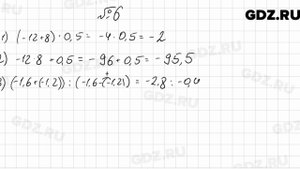 GDZ.RU
№6
1) (-12+8)·0,5 = -4·0,5 = -2
2) -12·8+0,5 = -96+0,5 = -95,5
3) (-1,6+(-1,2)) : (-1,6-(-1,2)) = -2,8 : -0,4